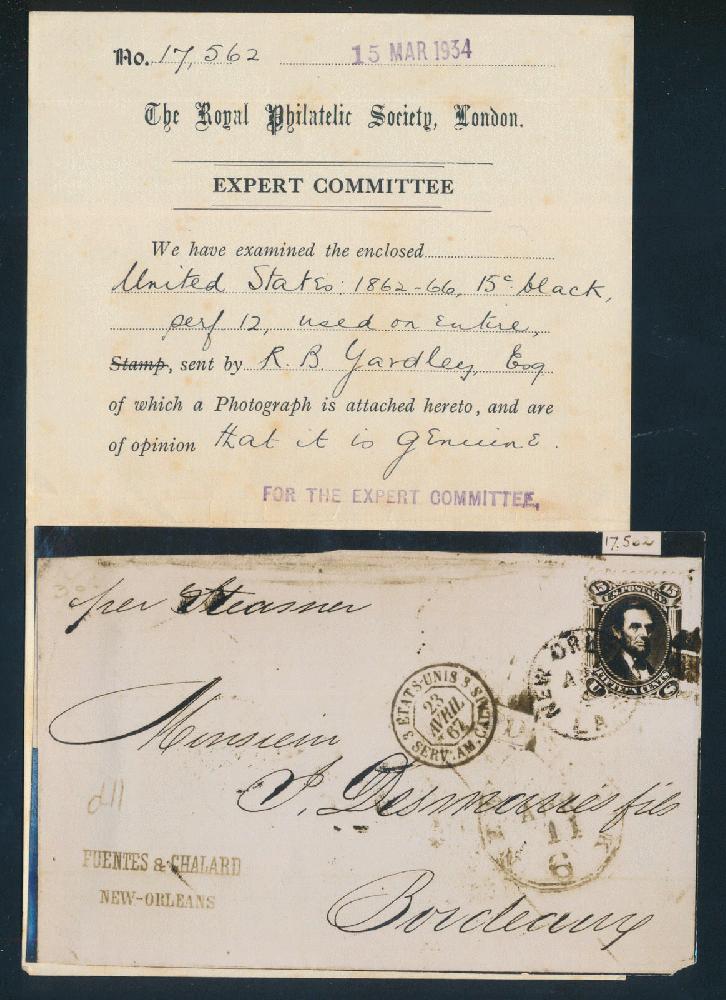 No. 17,562 15 MAR 1934
The Royal Philatelic Society, London.
EXPERT COMMITTEE
We have examined the enclosed
United States: 1862-66, 15c black,
perf 12, used on entire,
Stamp, sent by R. B Yardley, Esq
of which a Photograph is attached hereto, and are
of opinion that it is genuine.
FOR THE EXPERT COMMITTEE,
17.562
per Steamer
15 U.S. POSTAGE 15
FIFTEEN CENTS
U S
NEW
LA
ETATS-UNIS
3 SERV. AM. CALAIS 3
23
AVRIL
67
Monsieur
fils
11
6
FUENTES & CHALARD
NEW-ORLEANS
Bordeaux